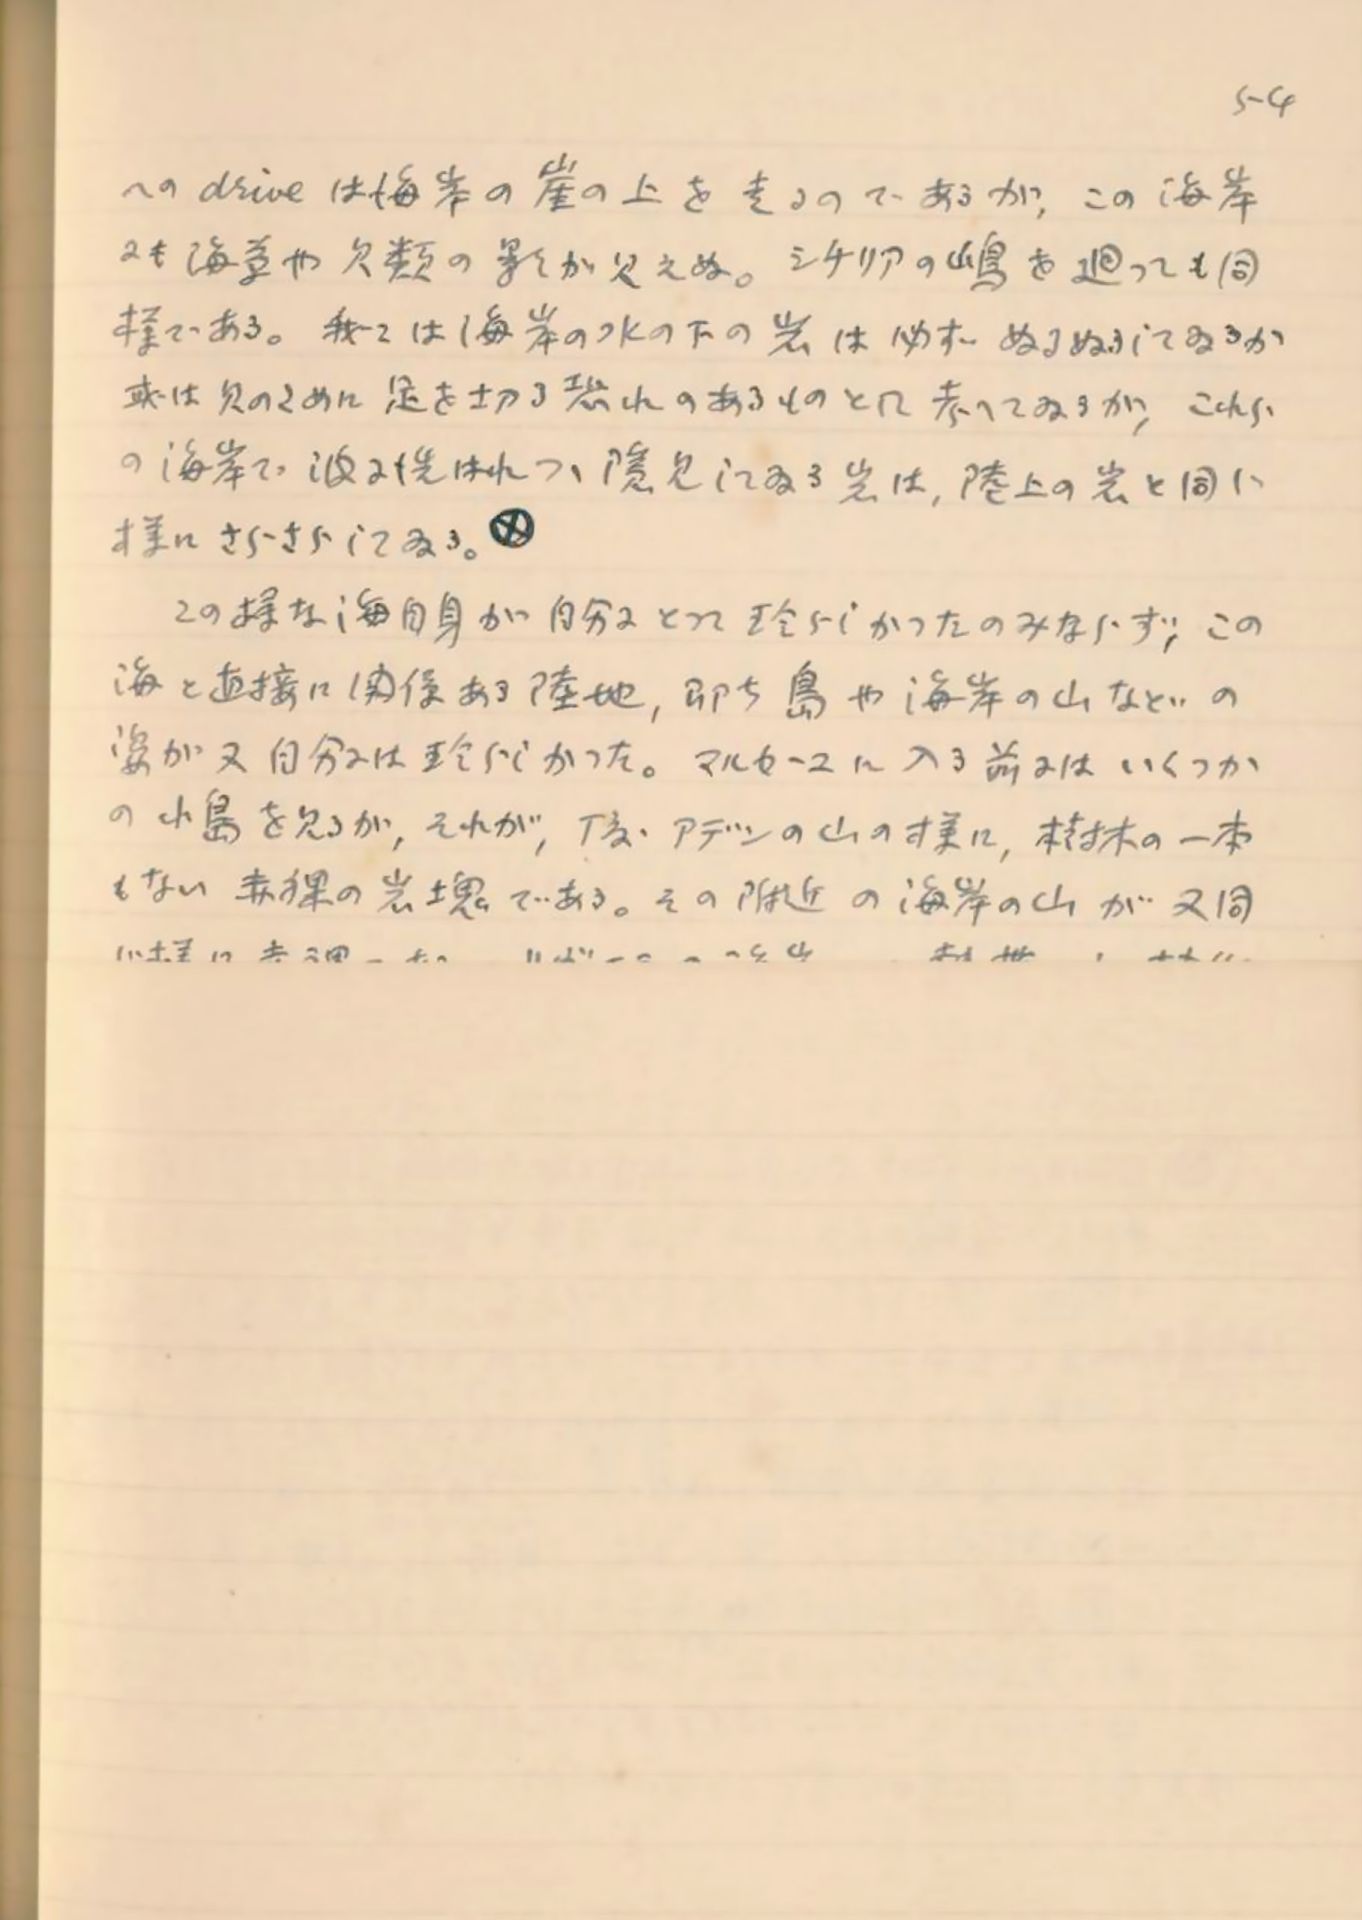 54
への drive は海岸の崖の上を走るのであるが、この海岸
にも海草や貝類の影が見えぬ。シチリアの嶋を廻っても同
様である。我々は海岸の水の下の岩は必ずぬるぬるしてゐるか
或は貝のために足を切る恐れのあるものとして考へてゐるが、これら
の海岸で波に洗はれつゝ隠見してゐる岩は、陸上の岩と同じ
様にさらさらしてゐる。⊗
この様な海自身が自分にとって珍らしかったのみならず、この
海と直接に関係ある陸地、即ち島や海岸の山などの
姿が又自分には珍らしかった。マルセーユに入る前にはいくつか
の小島を見るが、それが、丁度アデンの山の様に、樹木の一本
もない赤裸の岩塊である。その附近の海岸の山が又同
じ様に